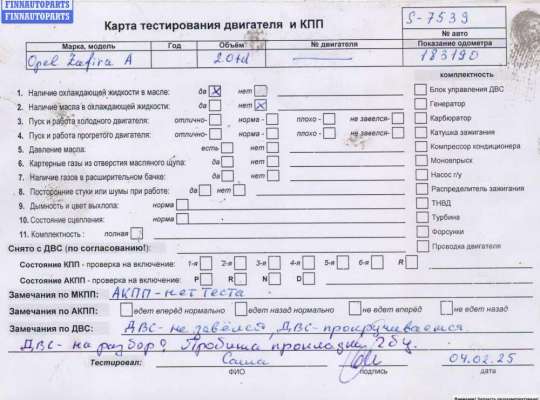 FINNAUTOPARTS
FINNAUTOPARTS
Карта тестирования двигателя и КПП
S-7539
№ авто
Марка, модель Год Объём № двигателя Показание одометра
Opel Zafira A 2.0td — 183190
комплектность
1. Наличие охлаждающей жидкости в масле: да x нет
2. Наличие масла в охлаждающей жидкости: да нет x
3. Пуск и работа холодного двигателя: отлично- норма - плохо - не завелся-
4. Пуск и работа прогретого двигателя: отлично- норма - плохо - не завелся-
5. Давление масла: есть нет
6. Картерные газы из отверстия масляного щупа: да нет
7. Наличие газов в расширительном бачке: да нет
8. Посторонние стуки или шумы при работе: да нет
9. Дымность и цвет выхлопа: норма
10. Состояние сцепления: норма
11. Комплектность : полная
Блок управления ДВС
Генератор
Карбюратор
Катушка зажигания
Компрессор кондиционера
Моновпрыск
Насос г/у
Распределитель зажигания
ТНВД
Турбина
Форсунки
Проводка двигателя
Снято с ДВС (по согласованию!):
Состояние КПП - проверка на включение: 1-я 2-я 3-я 4-я 5-я 6-я R
Состояние АКПП - проверка на включение: P R N D
Замечания по МКПП: АКПП-нет теста
Замечания по АКПП: едет вперёд нормально едет назад нормально не едет вперёд не едет назад
Замечания по ДВС: ДВС- не завёлся, ДВС- прокручивается.
ДВС- на разбор? Пробита прокладка ГБЦ.
Тестировал: Саша 04.02.25
ФИО подпись дата